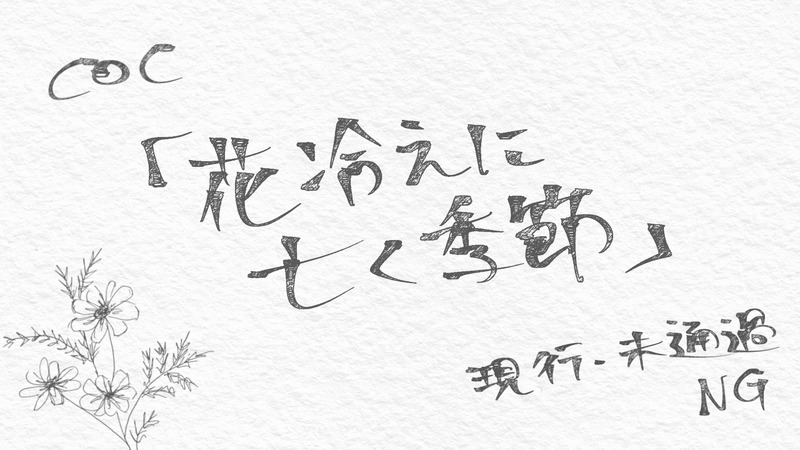 COC
「花冷えに
七く季節」
現行・未通過
NG